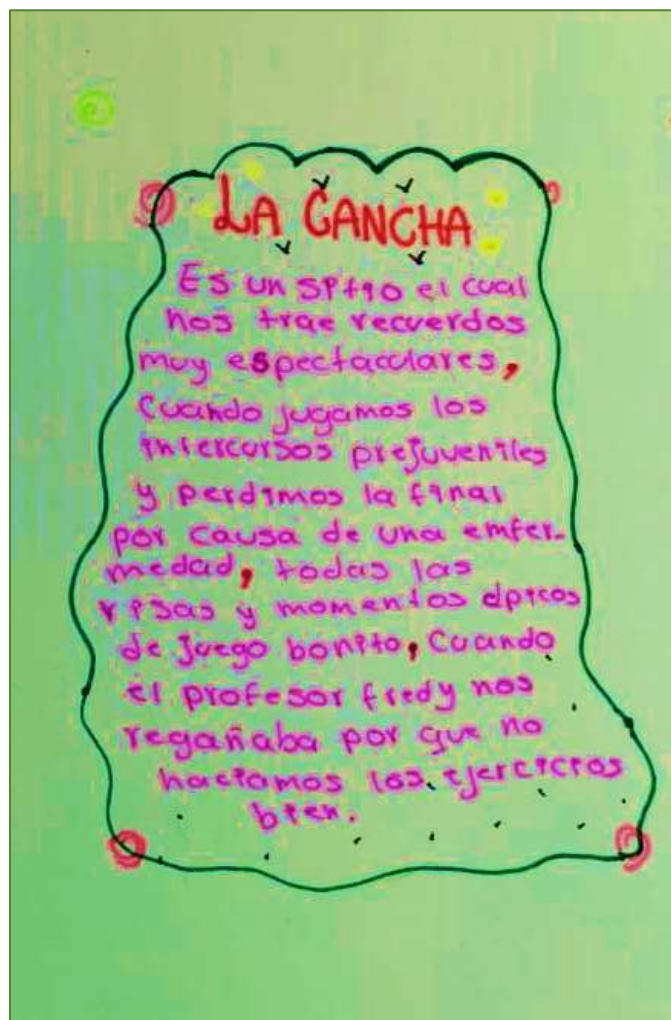 LA CANCHA
Es un sitio el cual
nos trae recuerdos
muy espectaculares,
Cuando jugamos los
intercursos prejuveniles
y perdimos la final
por causa de una emfer-
medad, todas las
risas y momentos epicos
de juego bonito, Cuando
el profesor fredy nos
regañaba por que no
haciamos los ejercicios
bien.